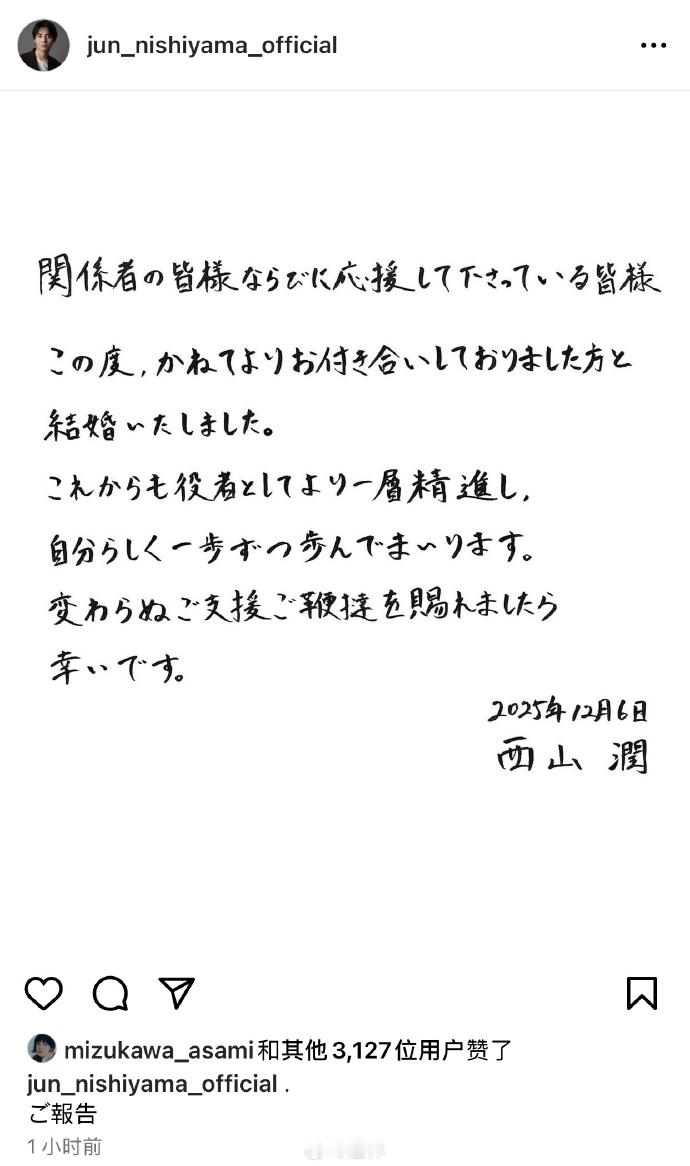 jun_nishiyama_official
関係者の皆様ならびに応援して下さっている皆様
この度、かねてよりお付き合いしておりました方と
結婚いたしました。
これからも役者としてより一層精進し、
自分らしく一歩ずつ歩んでまいります。
変わらぬご支援ご鞭撻を賜れましたら
幸いです。
2025年12月6日
西山 潤
mizukawa_asami和其他 3,127位用户赞了
jun_nishiyama_official .
ご報告
1 小时前